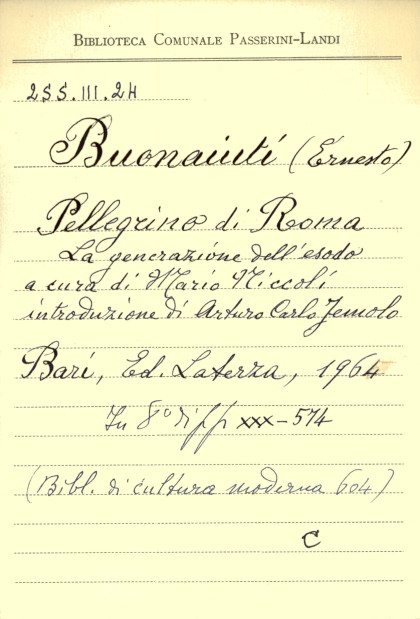 BIBLIOTECA COMUNALE PASSERINI-LANDI
255.III.24
Buonaiuti (Ernesto)
Pellegrino di Roma
La generazione dell'esodo
a cura di Mario Niccoli
introduzione di Arturo Carlo Jemolo
Bari, Ed. Laterza, 1964
In 8° di pp xxx-574
(Bibl. di cultura moderna 604)
C